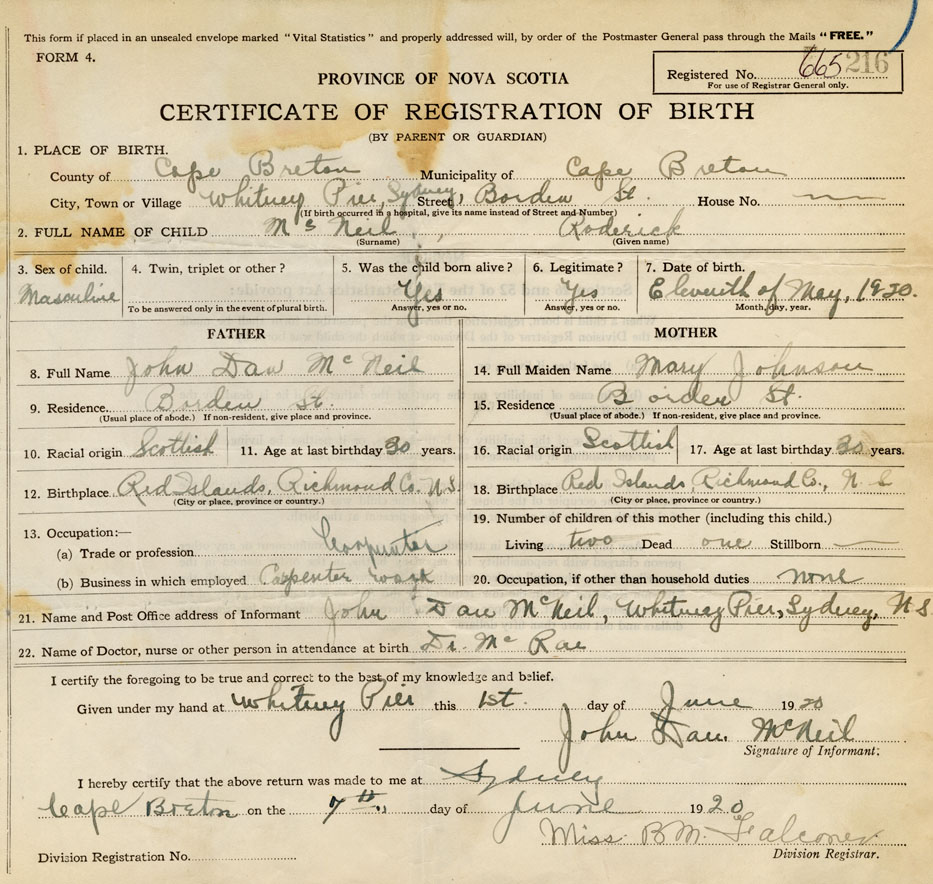 This form if placed in an unsealed envelope marked "Vital Statistics" and properly addressed will, by order of the Postmaster General pass through the Mails "FREE."
FORM 4.
PROVINCE OF NOVA SCOTIA
Registered No. 665 216
For use of Registrar General only.
CERTIFICATE OF REGISTRATION OF BIRTH
(BY PARENT OR GUARDIAN)
1. PLACE OF BIRTH.
County of Cape Breton Municipality of Cape Breton
City, Town or Village Whitney Pier, Sydney, Street Borden St. House No. —
(If birth occurred in a hospital, give its name instead of Street and Number)
2. FULL NAME OF CHILD Mc Neil, Roderick
(Surname) (Given name)
3. Sex of child. 4. Twin, triplet or other? 5. Was the child born alive? 6. Legitimate? 7. Date of birth.
Masculine Yes Yes Eleventh of May, 1920.
To be answered only in the event of plural birth. Answer, yes or no. Answer, yes or no. Month, day, year.
FATHER MOTHER
8. Full Name John Dan Mc Neil 14. Full Maiden Name Mary Johnson
9. Residence. Borden St. 15. Residence Borden St.
(Usual place of abode.) If non-resident, give place and province. (Usual place of abode.) If non-resident, give place and province.
10. Racial origin Scottish 11. Age at last birthday 30 years. 16. Racial origin Scottish 17. Age at last birthday 30 years.
12. Birthplace Red Islands, Richmond Co. N.S. 18. Birthplace Red Islands, Richmond Co., N S
(City or place, province or country.) (City or place, province or country.)
13. Occupation:— 19. Number of children of this mother (including this child.)
(a) Trade or profession Carpenter Living two Dead one Stillborn —
(b) Business in which employed Carpenter work 20. Occupation, if other than household duties none
21. Name and Post Office address of Informant John Dan McNeil, Whitney Pier, Sydney, N S
22. Name of Doctor, nurse or other person in attendance at birth Dr. Mc Rae
I certify the foregoing to be true and correct to the best of my knowledge and belief.
Given under my hand at Whitney Pier this 1st. day of June 1920
John Dan. McNeil
Signature of Informant.
I hereby certify that the above return was made to me at Sydney
Cape Breton on the 7th, day of June 1920
Miss. B.M. Falconer
Division Registration No. Division Registrar.